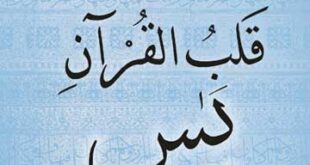 قَلبُ القُرْآنِ
يٰس